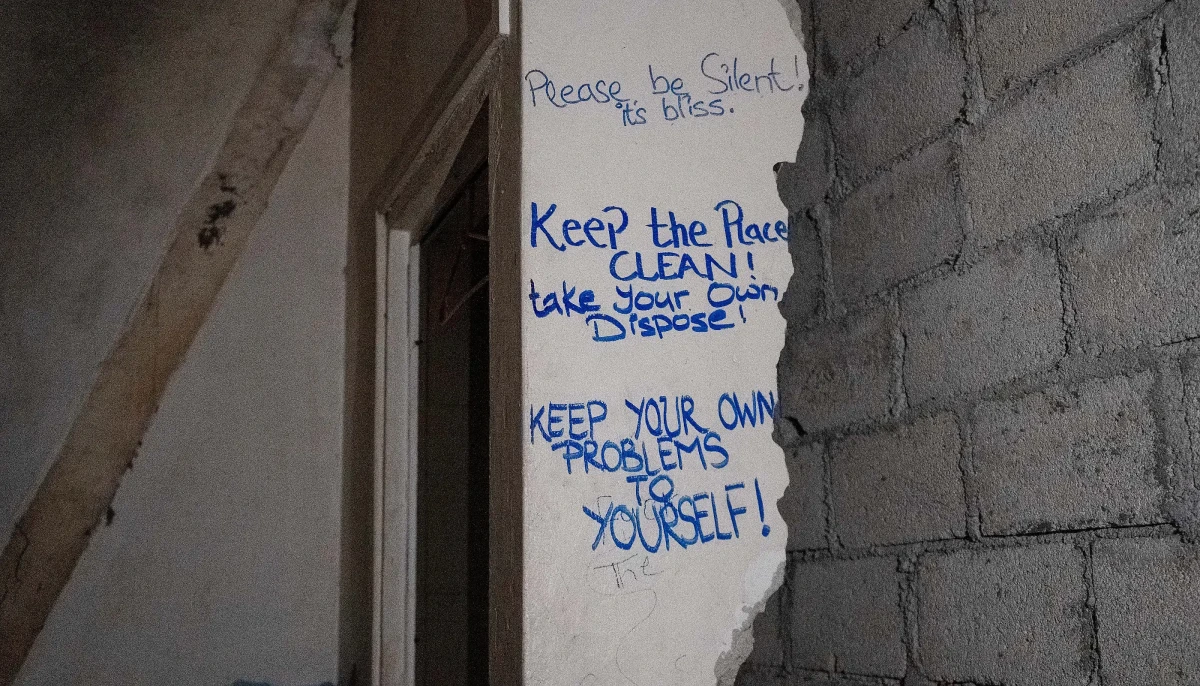 Please be Silent!
it's bliss.
Keep the Place
CLEAN!
take your Own
Dispose!
KEEP YOUR OWN
PROBLEMS
TO
YOURSELF!
The